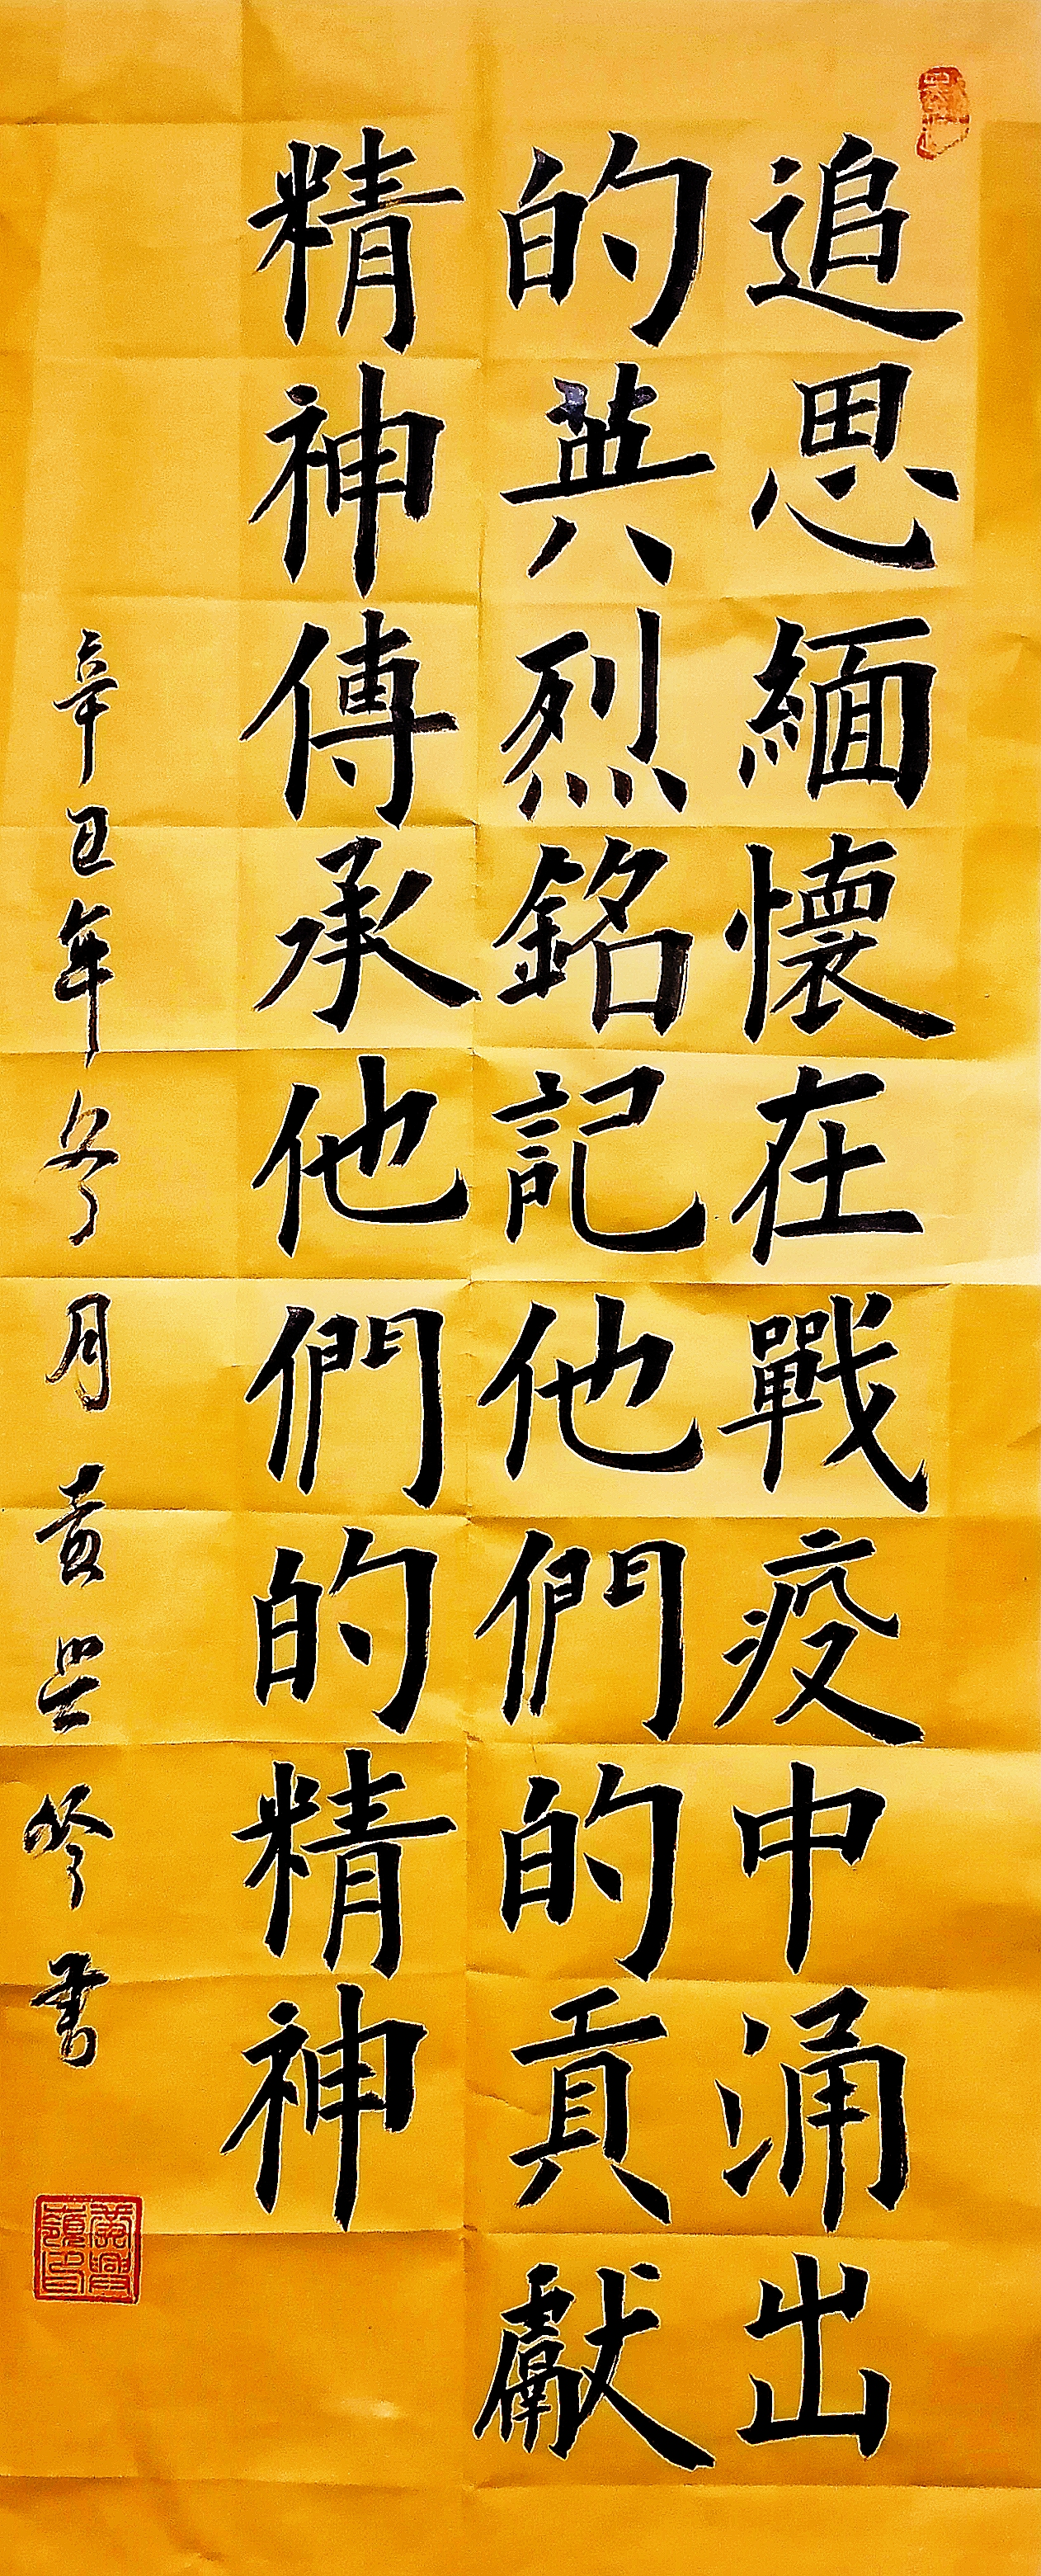 追思緬懷在戰疫中涌出
的英烈銘記他們的貢獻
精神傳承他們的精神
辛丑年冬月黄興岭書
黃興嶺印